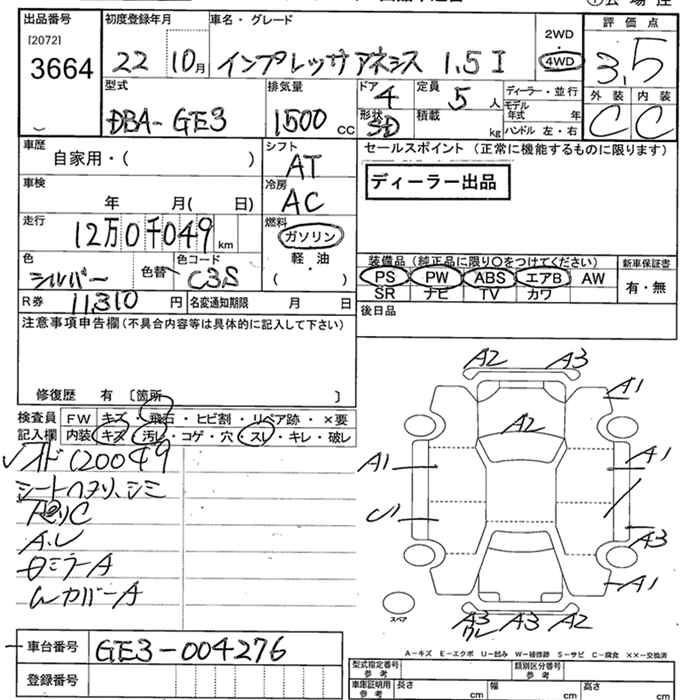 出品番号
[2072]
3664
初度登録年月
22 10月
車名・グレード
インプレッサアネシス 1.5I
2WD
4WD
評価点
3.5
外装 内装
C C
型式
DBA-GE3
排気量
1500 CC
ドア
4
形状
SD
定員
5 人
積載
kg
ディーラー・並行
モデル
年式 年
ハンドル 左・右
車歴
自家用・( )
車検
年 月( 日)
走行
12万0千049 km
色
シルバー
色替
色コード
C3S
シフト
AT
冷房
AC
燃料
ガソリン
軽・油
( )
セールスポイント (正常に機能するものに限ります)
ディーラー出品
装備品(純正品に限り○をつけてください)
PS PW ABS エアB AW
SR ナビ TV カワ
新車保証書
有・無
R券 11,310 円
名変通知期限 月 日
後日品
注意事項申告欄(不具合内容等は具体的に記入して下さい)
修復歴 有 〔箇所 〕
検査員
記入欄
FW キズ・飛石・ヒビ割・リペア跡・×要
内装 キズ・汚レ・コゲ・穴・スレ・キレ・破レ
オド120049
シートヘタリ、シミ
A2 A3
A1
A2
A1 A1
U1
A3
A1
A3 A3 A2
スペア
A-キズ E-エクボ U-凹み W-補修跡 S-サビ C-腐食 ××-交換済
車台番号 GE3-004276
登録番号
型式指定番号
参考
類別区分番号
参考
車庫証明用
参考
長さ cm
幅 cm
高さ cm